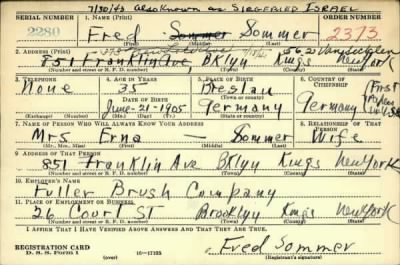 7/30/43 Also Known as SIEGFRIED ISRAEL
SERIAL NUMBER
1. NAME (Print)
ORDER NUMBER
2280
Fred Sommer Sommer
2373
(First) (Middle) (Last)
2. ADDRESS (Print)
851 Franklin Ave, BKlyn Kings New York
(Number and street or R. F. D. number) (Town) (County) (State)
3. TELEPHONE
4. AGE IN YEARS
5. PLACE OF BIRTH
6. COUNTRY OF CITIZENSHIP
None
35
Breslau
DATE OF BIRTH
Germany
Germany (First Papers
June-21-1905
(Mo.) (Day) (Yr.)
7. NAME OF PERSON WHO WILL ALWAYS KNOW YOUR ADDRESS
8. RELATIONSHIP OF THAT PERSON
Mrs Erna — Sommer
Wife
9. ADDRESS OF THAT PERSON
851 Franklin Ave BKlyn Kings New York
(Number and street or R. F. D. number) (Town) (County) (State)
10. EMPLOYER'S NAME
Fuller Brush Company
11. PLACE OF EMPLOYMENT OR BUSINESS
26 Court St Brooklyn Kings New York
(Number and street or R. F. D. number) (Town) (County) (State)
I AFFIRM THAT I HAVE VERIFIED ABOVE ANSWERS AND THAT THEY ARE TRUE.
REGISTRATION CARD
D. S. S. Form 1
16—17105
Fred Sommer
(Registrant's signature)